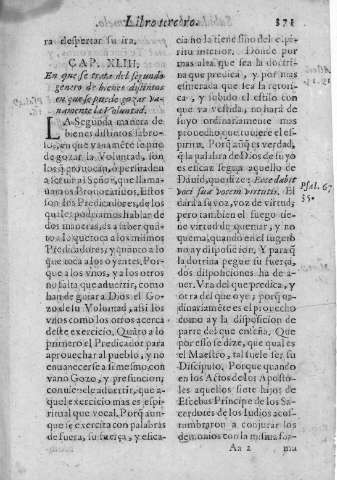 Libro tercero.
371
ra despertar su ira.
CAP. XLIII.
En que se trata del segundo
genero de bienes distintos
en que se puede gozar va-
namente la Voluntad.
LA Segunda manera de
bienes distintos sabro-
sos, en que vanamēte se pue
de gozar la Voluntad, son
los q̃ prouocan, o persuaden
a seruir al Señor, que llama-
uamos Prouocatiuos. Estos
son los Predicadores, de los
quales podriamos hablar de
dos maneras, es a saber quā-
to a lo que toca a los mismos
Predicadores, y quanto a lo
que toca a los oyentes, Por-
que a los vnos, y a los otros
no falta que aduertir, como
han de guiar a Dios el Go-
zo de su Voluntad, assi los
vnos como los otros acerca
deste exercicio. Quāto a lo
primero el Predicador para
aprouechar al pueblo, y no
enuanecerse a si mesmo, con
vano Gozo, y presuncion,
conuienele aduertir, que a-
quel exercicio mas es espi-
ritual que vocal. Porq̃ aun-
que se exercita con palabras
de fuera, su fuerça, y efica-
cia no la tiene sino del espi-
ritu interior. Donde por
mas alta que sea la doctri-
na que predica, y por mas
esmerada que sea la retori-
ca, y subido el estilo con
que va vestida, no hará de
suyo ordinariamente mas
prouecho, que tuuiere el es-
piritu. Porq̃ aunq̃ es verdad,
q̃ la palabra de Dios de suyo
es eficaz segun aquello de
Dauid, que dize: Ecce dabit
voci suæ vocem virtutis. El
dará a su voz, voz de virtud;
pero tambien el fuego tie-
ne virtud de quemar, y no
quema, quando en el sugeto
no ay disposicion. Y paraq̃
la dotrina pegue su fuerça,
dos disposiciones ha de a-
uer. Vna del que predica, y
otra del que oye, porq̃ or-
dinariamente es el prouecho
como ay la disposicion de
parte del que enseña. Que
por esso se dize, que qual es
el Maestro, tal suele ser su
Discipulo. Porque quando
en los Actos de los Aposto-
les aquellos siete hijos de
Escebas Principe de los Sa-
cerdotes de los Iudios acos-
tumbraron a conjurar los
demonios con la misma for-
Psal. 67
35.
Aa 2
ma